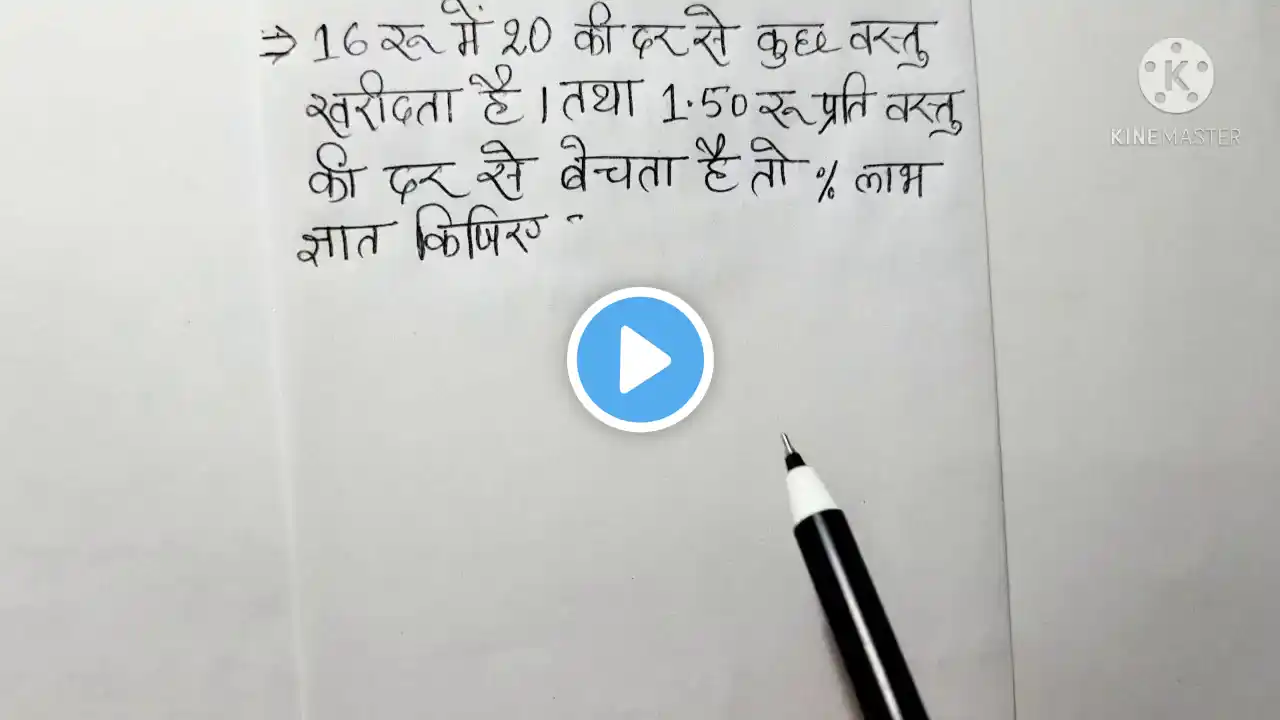 ⇒ 16 रू में 20 की दर से कुछ वस्तु
खरीदता है । तथा 1.50 रू प्रति वस्तु
की दर से बेचता है तो % लाभ
ज्ञात किजिए
K
KINEMASTER